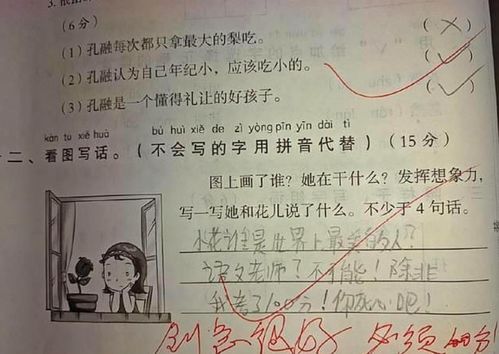 (6分)
(1)孔融每次都只拿最大的梨吃。 (×)
(2)孔融认为自己年纪小，应该吃小的。 (✓)
(3)孔融是一个懂得礼让的好孩子。 (✓)
kàn tú xiě huà bú huì xiě de zì yòng pīn yīn dài tì
十二、看图写话。(不会写的字用拼音代替)(15分)
图上画了谁？她在干什么？发挥想象力，
写一写她和花儿说了什么。不少于4句话。
小花谁是世界上最美的人？
语文老师？不可能！除非
我考了100分！你死心吧！
创意很好 必须